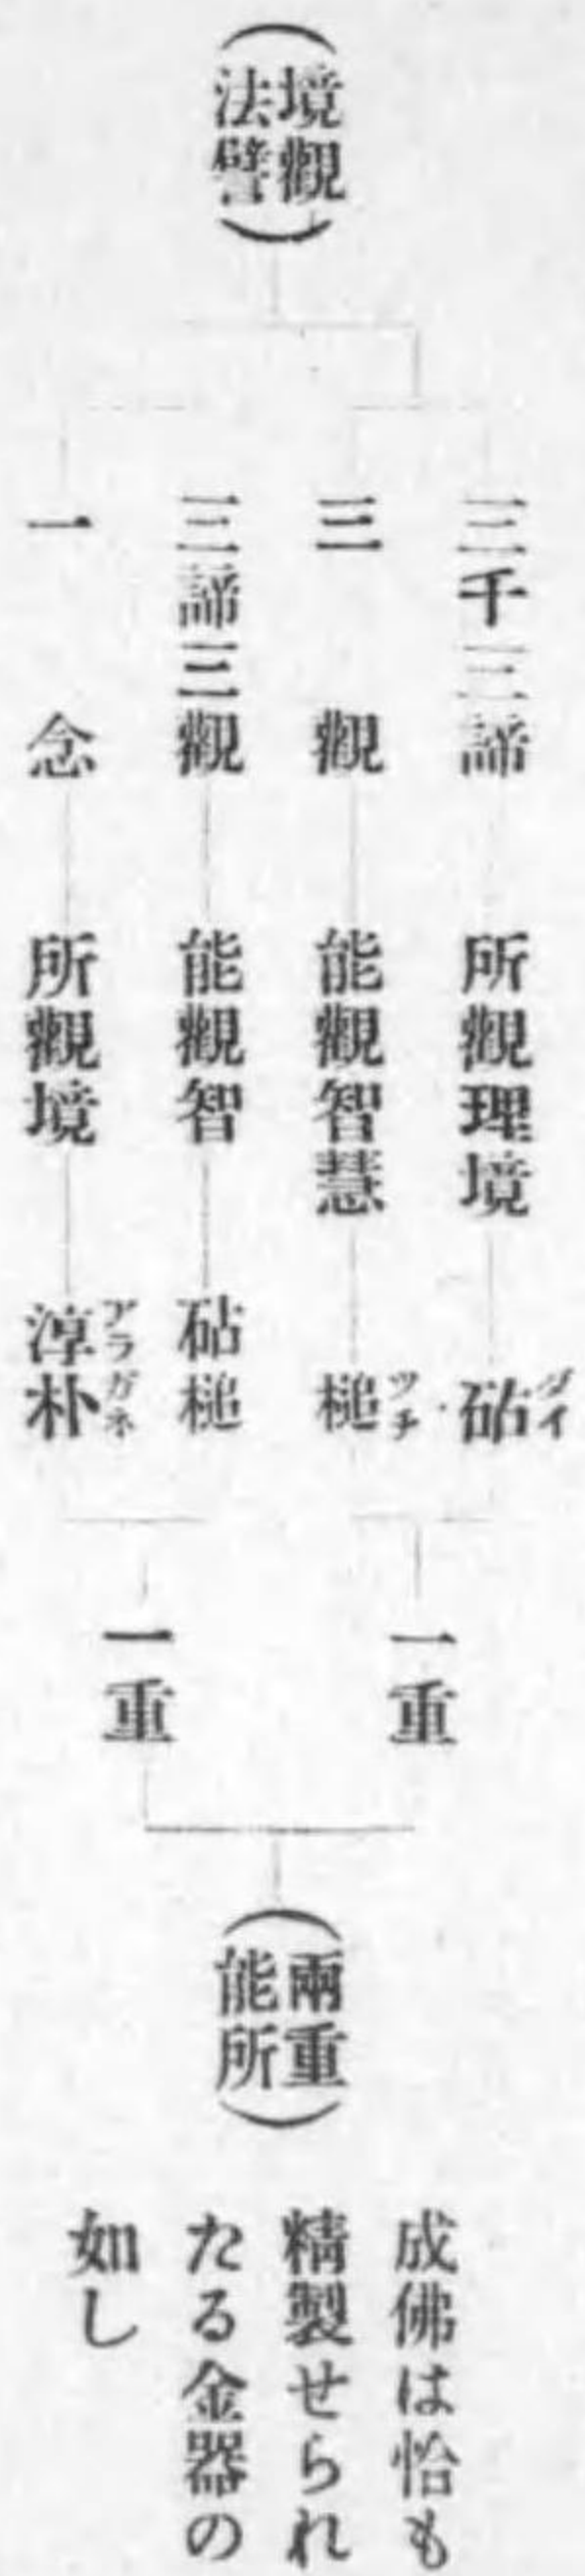 (境觀
法譬)
三千三諦 所觀理境 砧
ダイ
三觀 能觀智慧 槌
ツチ
三諦三觀 能觀智 砧槌
一念 所觀境 淳朴
アラガネ
一重
一重
(兩重
能所)
成佛は恰も
精製せられ
たる金器の
如し